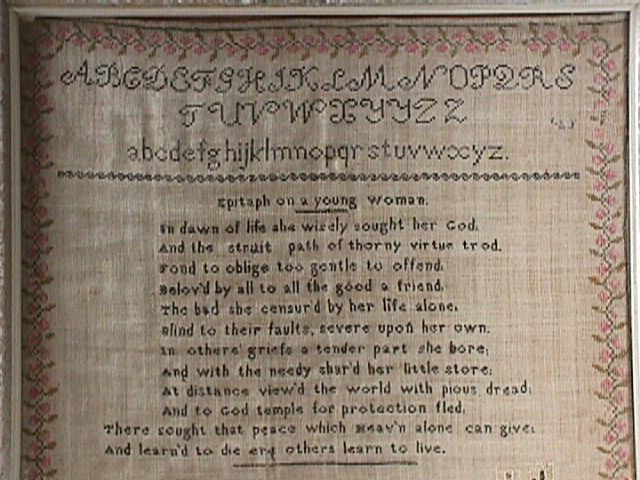 ABCDEFGHIKLMNOPQRS
TUVWXYYZZ
abcdefghijklmnopqrstuvwxyz.
Epitaph on a young woman.
In dawn of life she wisely sought her God,
And the strait path of thorny virtue trod.
Fond to oblige too gentle to offend,
Belov'd by all to all the good a friend,
The bad she censur'd by her life alone,
Blind to their faults, severe upon her own.
In others' griefs a tender part she bore;
And with the needy shar'd her little store;
At distance view'd the world with pious dread;
And to God temple for protection fled,
There sought that peace which Heav'n alone can give;
And learn'd to die ere others learn to live.